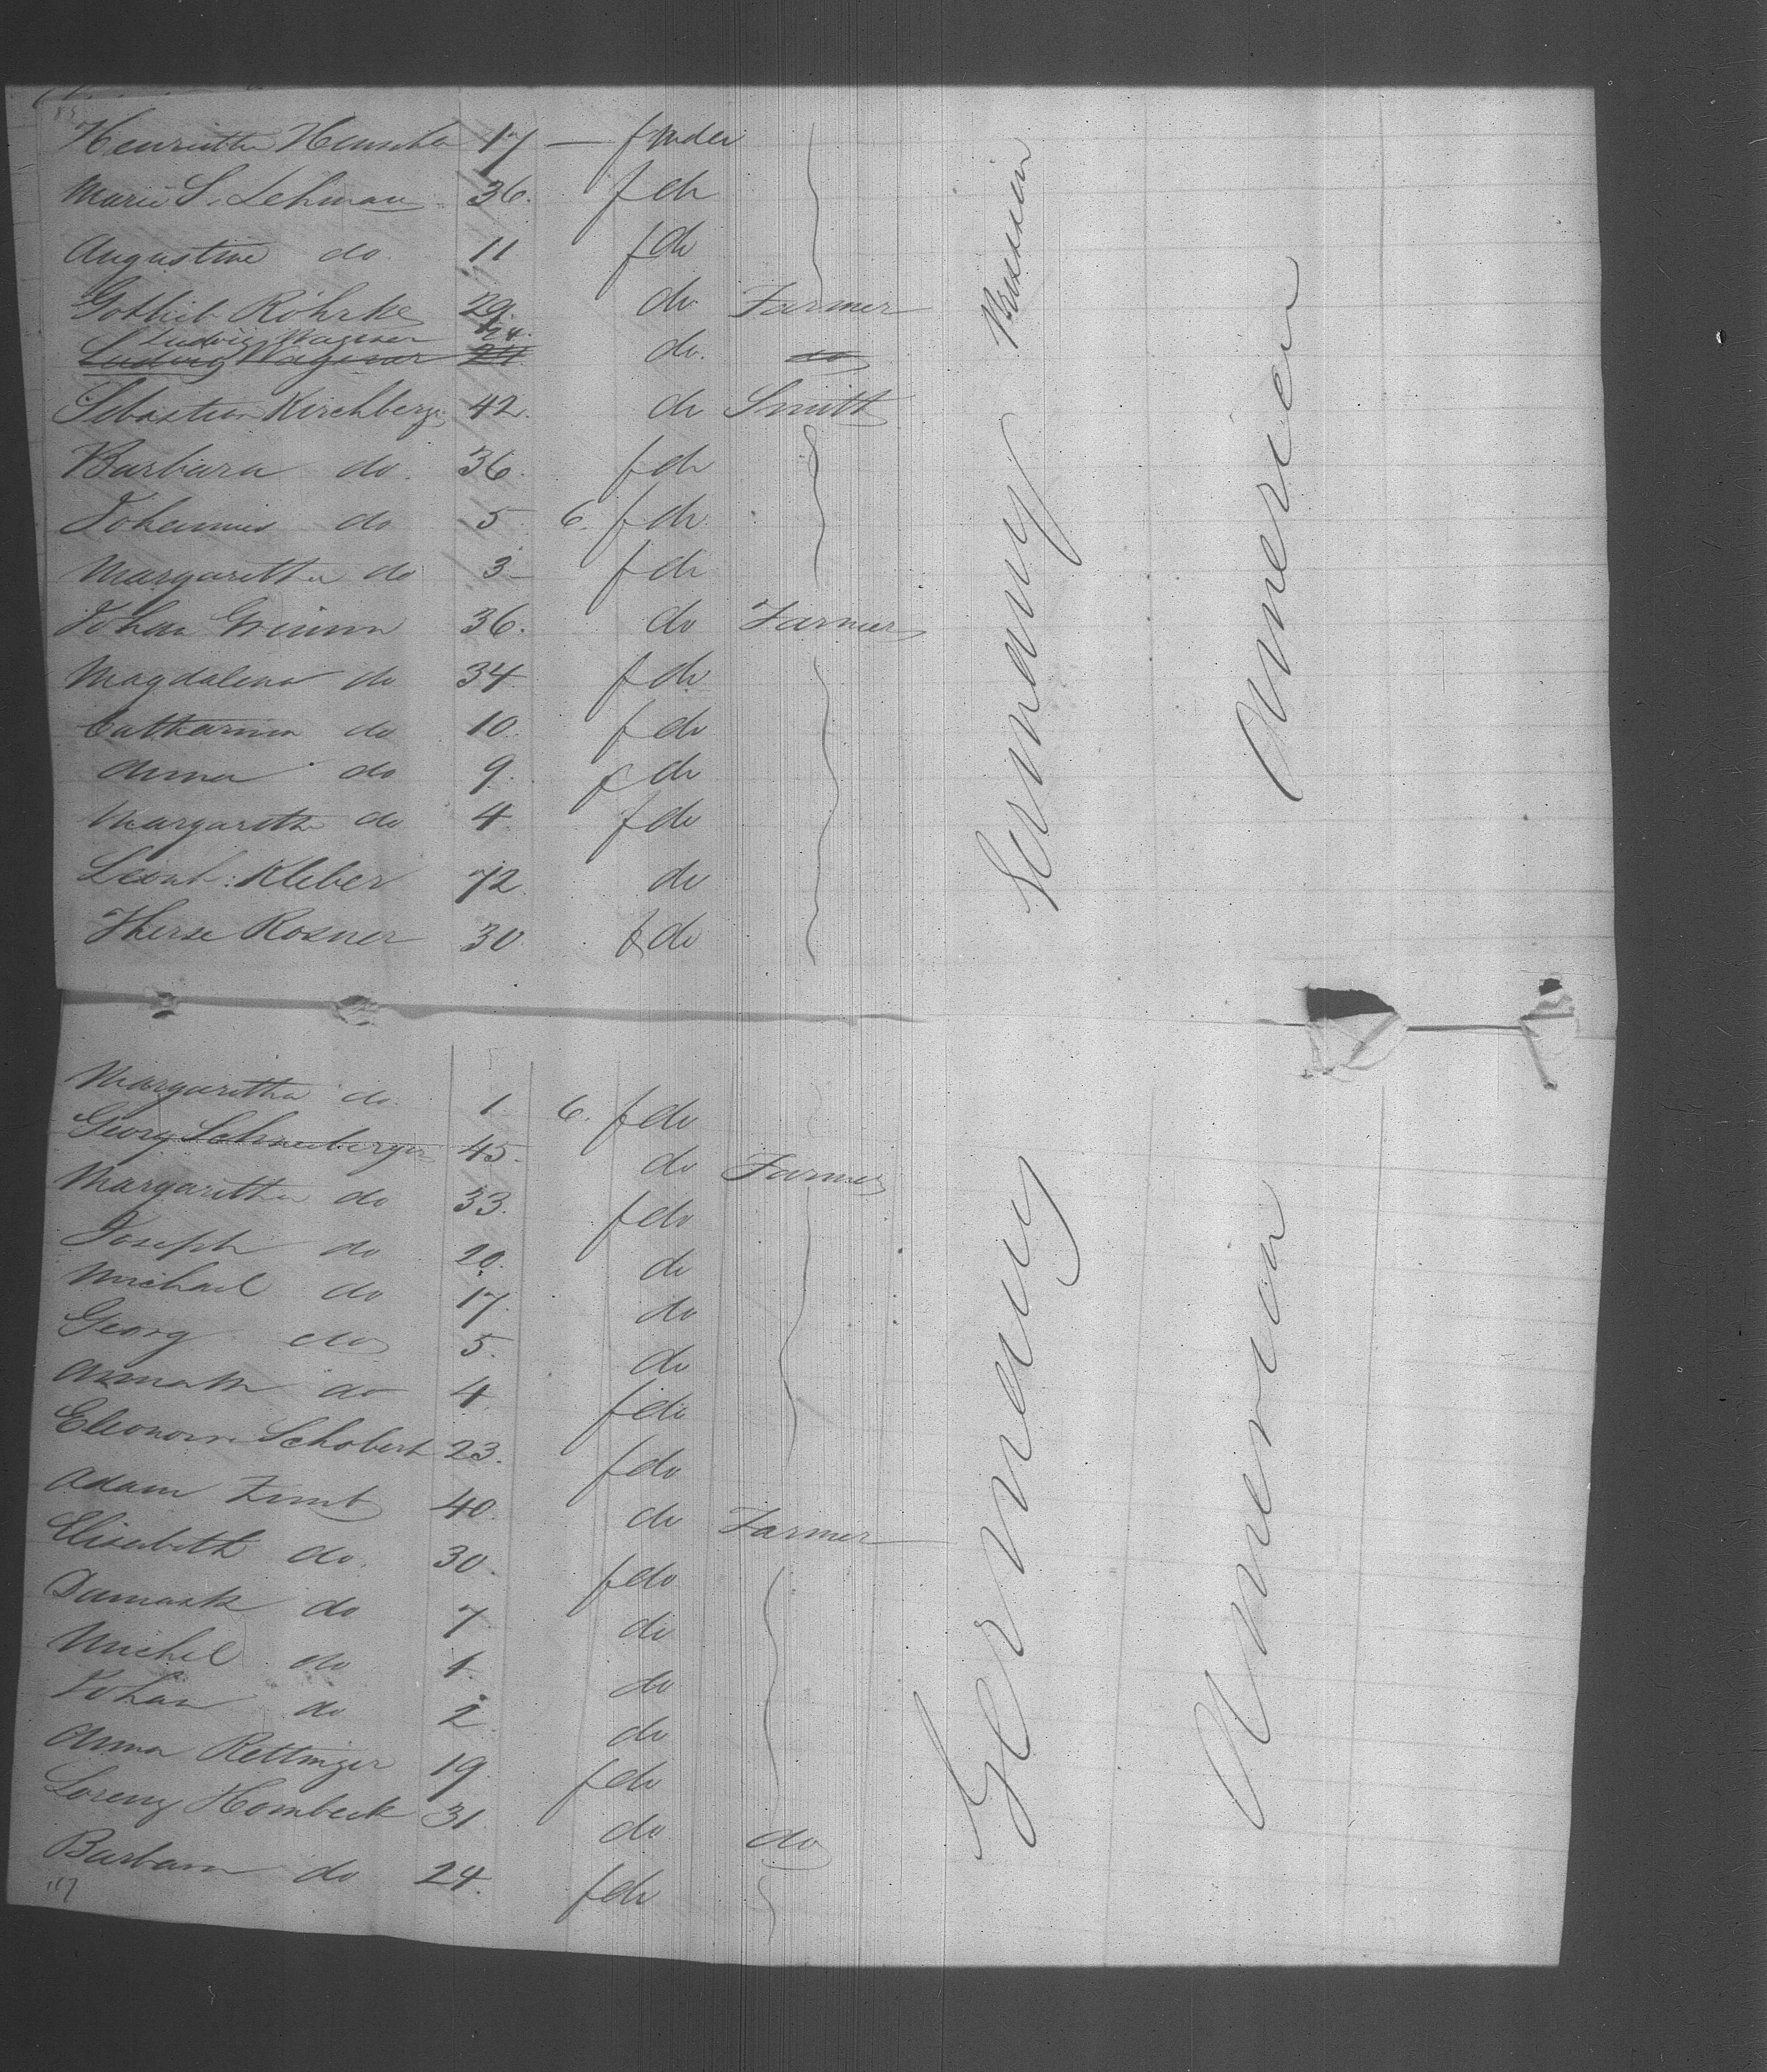 Henrietta 17 — f
Marie S. Lehman 36. f do
Augustine do. 11 f do
Gottlieb Röhrke 29. do Farmer
Ludwig Wagener 24.
Ludwig Wagener 24 do. do
Sebastian Kirchberger 42. do Smith
Barbara do. 36. f do
Johannes do 5 6. f do
Margaretha do 3 f do
Johan Grimm 36. do Farmer
Magdalena do 34 f do
Catharina do 10. f do
Anna do 9. f do
Margaretha do 4 f do
Leonh: Kleber 72 do
Therse Rosner 30 f do
Germany Preussen
America
Margaretha do. 1. 6. f do
Georg Schneeberger 45 do Farmer
Margaretha do 33. f do
Joseph do 20. do
Michael do 17. do
Georg do 5. do
do 4 f do
Eleonora Schobert 23. f do
Adam 40. do Farmer
Elisabeth do. 30. f do
do 7 do
Michel do 1. do
Johan do 2 do
Anna Rettinger 19 f do
Lorenz Hornbeck 31 do do
Barbara do 24. f do
Germany
America